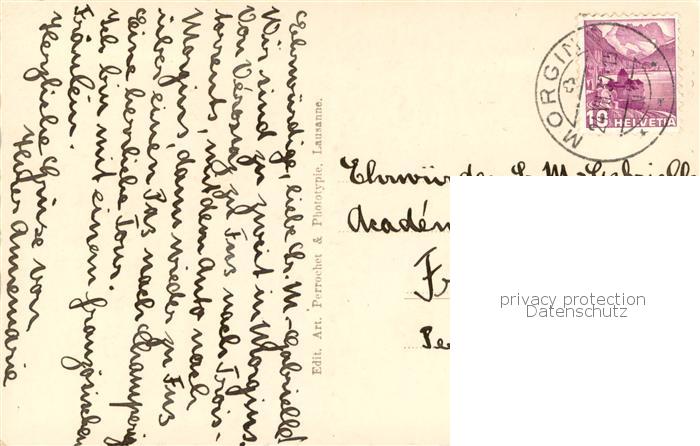 Ehrwürdige, liebe Sr. M-Gabrielle!
Wir sind zu zweit in Morgins.
Von Vérossaz zu Fuss nach Trois-
torrents, mit dem Auto nach
Morgins, dann wieder zu Fuss
über einen Pass nach Champéry
Eine herrliche Tour.
Ich bin mit einem französischen
Fräulein.
Herzliche Grüsse von
Annemarie
Edit. Art. Perrochet & Phototypie, Lausanne.
MORGIN
10 HELVETIA
Ehrwürd Sr. M-Gabriell
Acadé
Fr
Pe
privacy protection
Datenschutz